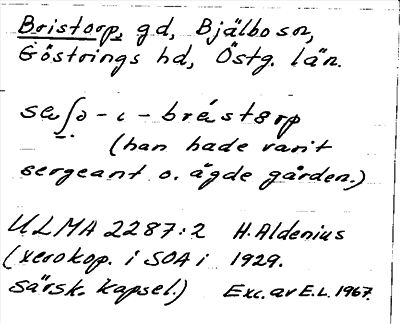 Bristorp, gd, Bjälbo sn,
Göstrings hd, Östg. län.
sa∫ə - ɩ - bréstɘrp
(han hade varit
sergeant o. ägde gården.)
ULMA 2287:2 H. Aldenius
(xerokop. i SOA i 1929.
särsk. kapsel.) Exc. av E.L. 1967.